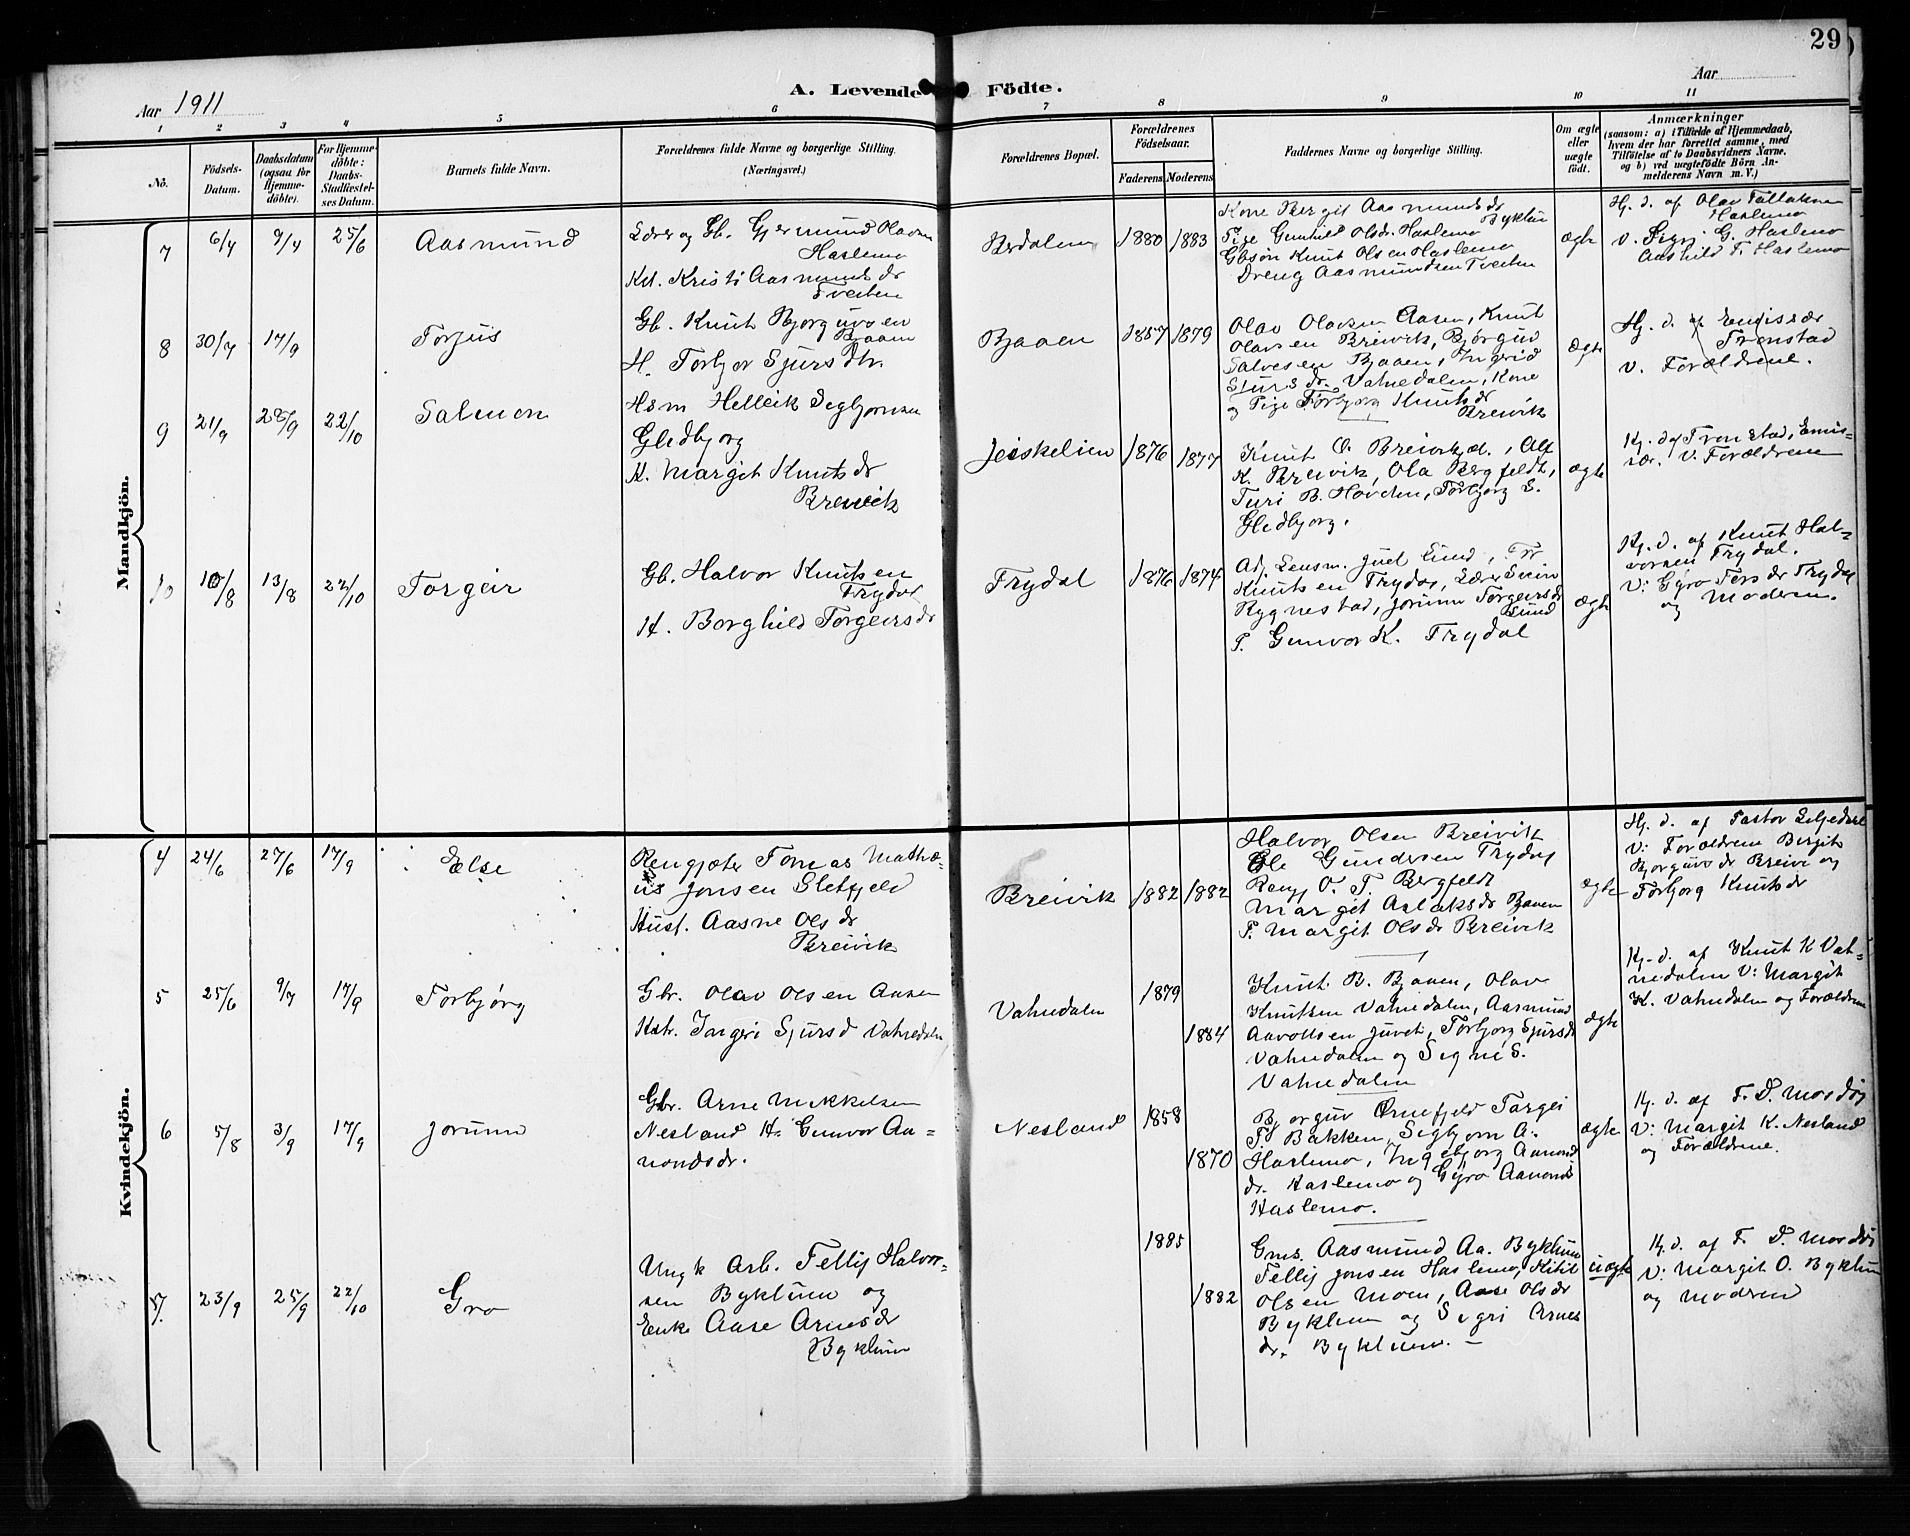 29
Aar 1911
A. Levende Födte.
Aar
1 2 3 4 5 6 7 8 9 10 11
No.
Födsels-
Datum.
Daabsdatum
(ogsaa for
Hjemme-
döbte).
For Hjemme-
döbte:
Daabs-
Stadfæstel-
ses Datum.
Barnets fulde Navn.
Forældrenes fulde Navne og borgerlige Stilling.
(Næringsvei.)
Forældrenes Bopæl.
Forældrenes
Födselsaar.
Faderens Moderens
Faddernes Navne og borgerlige Stilling.
Om ægte
eller
uægte
født.
Anmærkninger
(saasom: a) i Tilfælde af Hjemmedaab,
hvem der har forrettet samme, med
Tilföielse af to Daabsvidners Navne.
og b) ved uægtefödte Börn An-
melderens Navn m. V.)
Mandkjön.
7
6/4
9/4
25/6
Aasmund
Lærer og Gb. Gjermund Olavsen
Haslemo
Kst. Kristi Aasmundsdr
Tveiten
Berdalen
1880
1883
Kone Bergit Aasmundsdr
Byklum
Pige Gunhild Olsdr. Haslemo
Gbsøn Knut Olsen Haslemo
Dreng Aasmundsen Tveiten
ægte
Hj. d. af Olav Tallaksen
Haslemo
v. Sigri G. Haslemo
Aashild T. Haslemo
8
30/7
17/9
Torjus
Gb. Knut Bjorguvsen
Bjaaen
H. Torbjor Sjursdtr.
Bjaaen
1857
1879
Olav Olavsen Aasen, Knut
Olavsen Breivik, Bjørguv
Salvesen Bjaaen, Ingerid
Sjursdr. Vatnedalen, Kone
og Pige Torbjorg Knutsdr
Breivik
ægte
Hj. d. af Emissær
Tronstad
v. Forældrene.
9
21/9
28/9
22/10
Salmon
Hsm Helleik Segbjornsen
Gledbjorg
H. Margit Knutsdr
Breivik
Jeiskelien
1876
1877
Knut O. Breivik, Alf
K. Breivik, Ola Bergfeldt,
Turi B. Hovden, Torbjorg S.
Gledbjorg.
ægte
Hj. d. af Tronstad, Emis-
sær. v. Forældrene
10
10/8
13/8
22/10
Torgeir
Gb. Halvor Knutsen
Trydal
H. Borghild Torgeirsdr
Trydal
1876
1874
Adj. Lensm. Juel Lund, Tor
Knutsen Trydal, Lærer Svein
Rygnestad, Jorunn Torgeirsdr
Lund
P. Gunvor K. Trydal
ægte
Hj. d. af Knut Hal-
vorsen Trydal.
v: Gyro Torsdr Trydal
og Moderen.
Kvindekjön.
4
24/6
27/6
17/9
Else
Rengjæter Tomas Mathæ-
us Jonsen Sletfjeld
Hust. Aasne Olsdr
Breivik
Breivik
1882
1882
Halvor Olsen Breivik
Ole Gundersen Trydal
Rengj O. T. Bergfeldt
Margit Aslaksdr Bjaaen
P. Margit Olsdr Breivik
ægte
Hj. d. af Pastor Liljedahl
v: Forældrene Bergit
Bjorguvsdr Breive og
Torbjorg Knutsdr
5
25/6
9/7
17/9
Torbjörg
Gbr. Olav Olsen Aasen
Hst. Ingeri Sjursd Vatnedalen
Vatnedalen
1879
1884
Knut B. Bjaaen, Olav
Knutsen Vatnedalen, Aasmund
Aavoldsen Juvet, Torbjorg Sjursdr
Vatnedalen og Signe S.
Vatnedalen
ægte
Hj. d. af Knut K Vat-
nedalen v: Margit
K. Vatnedalen og Forældrene
6
5/8
3/9
17/9
Jorunn
Gbr. Arne Mikkelsen
Nesland H. Gunvor Aa-
nondsdr.
Nesland
1858
1870
Bjorguv Ørnefjeld Targei
T. Bakken, Segbjorn A.
Haslemo, Ingebjorg Aanonds
dr. Haslemo og Gyro Aanonds
Haslemo.
ægte
Hj. d. af T. D. Mosdøl
v: Margit K. Nesland
og Forældrene.
7.
23/9
25/9
22/10
Gro
Ungk Arb. Tellef Halvor-
sen Byklum og
Enke Aase Arnesdr
Byklum
1885
1882
Gms. Aasmund Aa. Byklum
Tellef Jonsen Haslemo, Kitil
Olsen Moen, Aase Olsdr
Byklum og Sigri Arnes
dr. Byklum. –
uægte
Hj. d. af T. D. Mosdøl
v: Margit O. Byklum
og Moderen